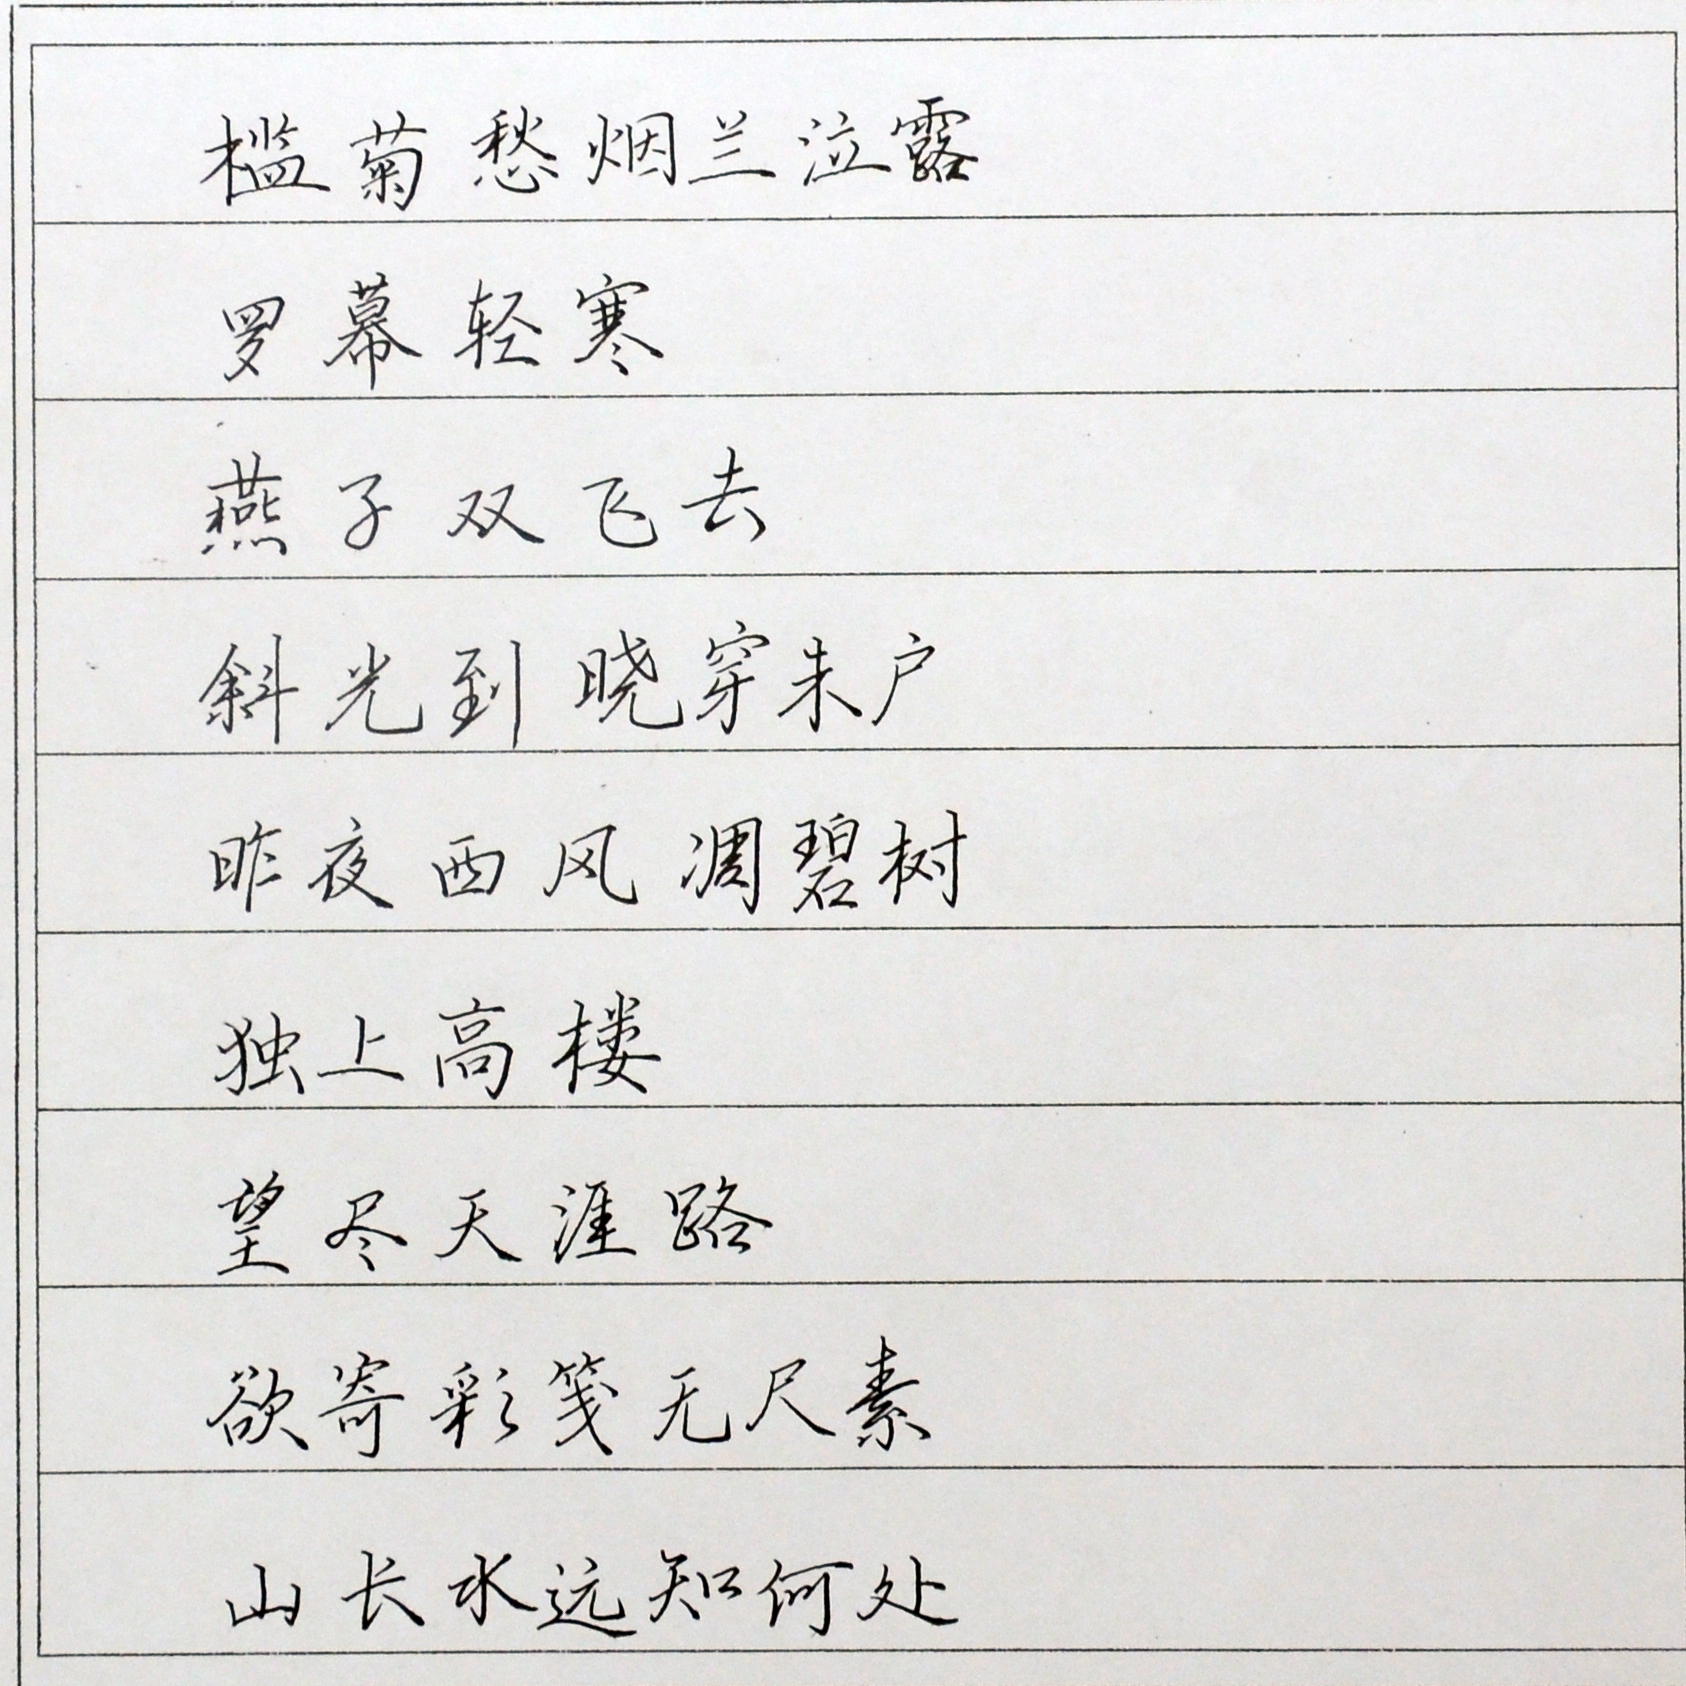 槛菊愁烟兰泣露
罗幕轻寒
燕子双飞去
斜光到晓穿朱户
昨夜西风凋碧树
独上高楼
望尽天涯路
欲寄彩笺无尺素
山长水远知何处